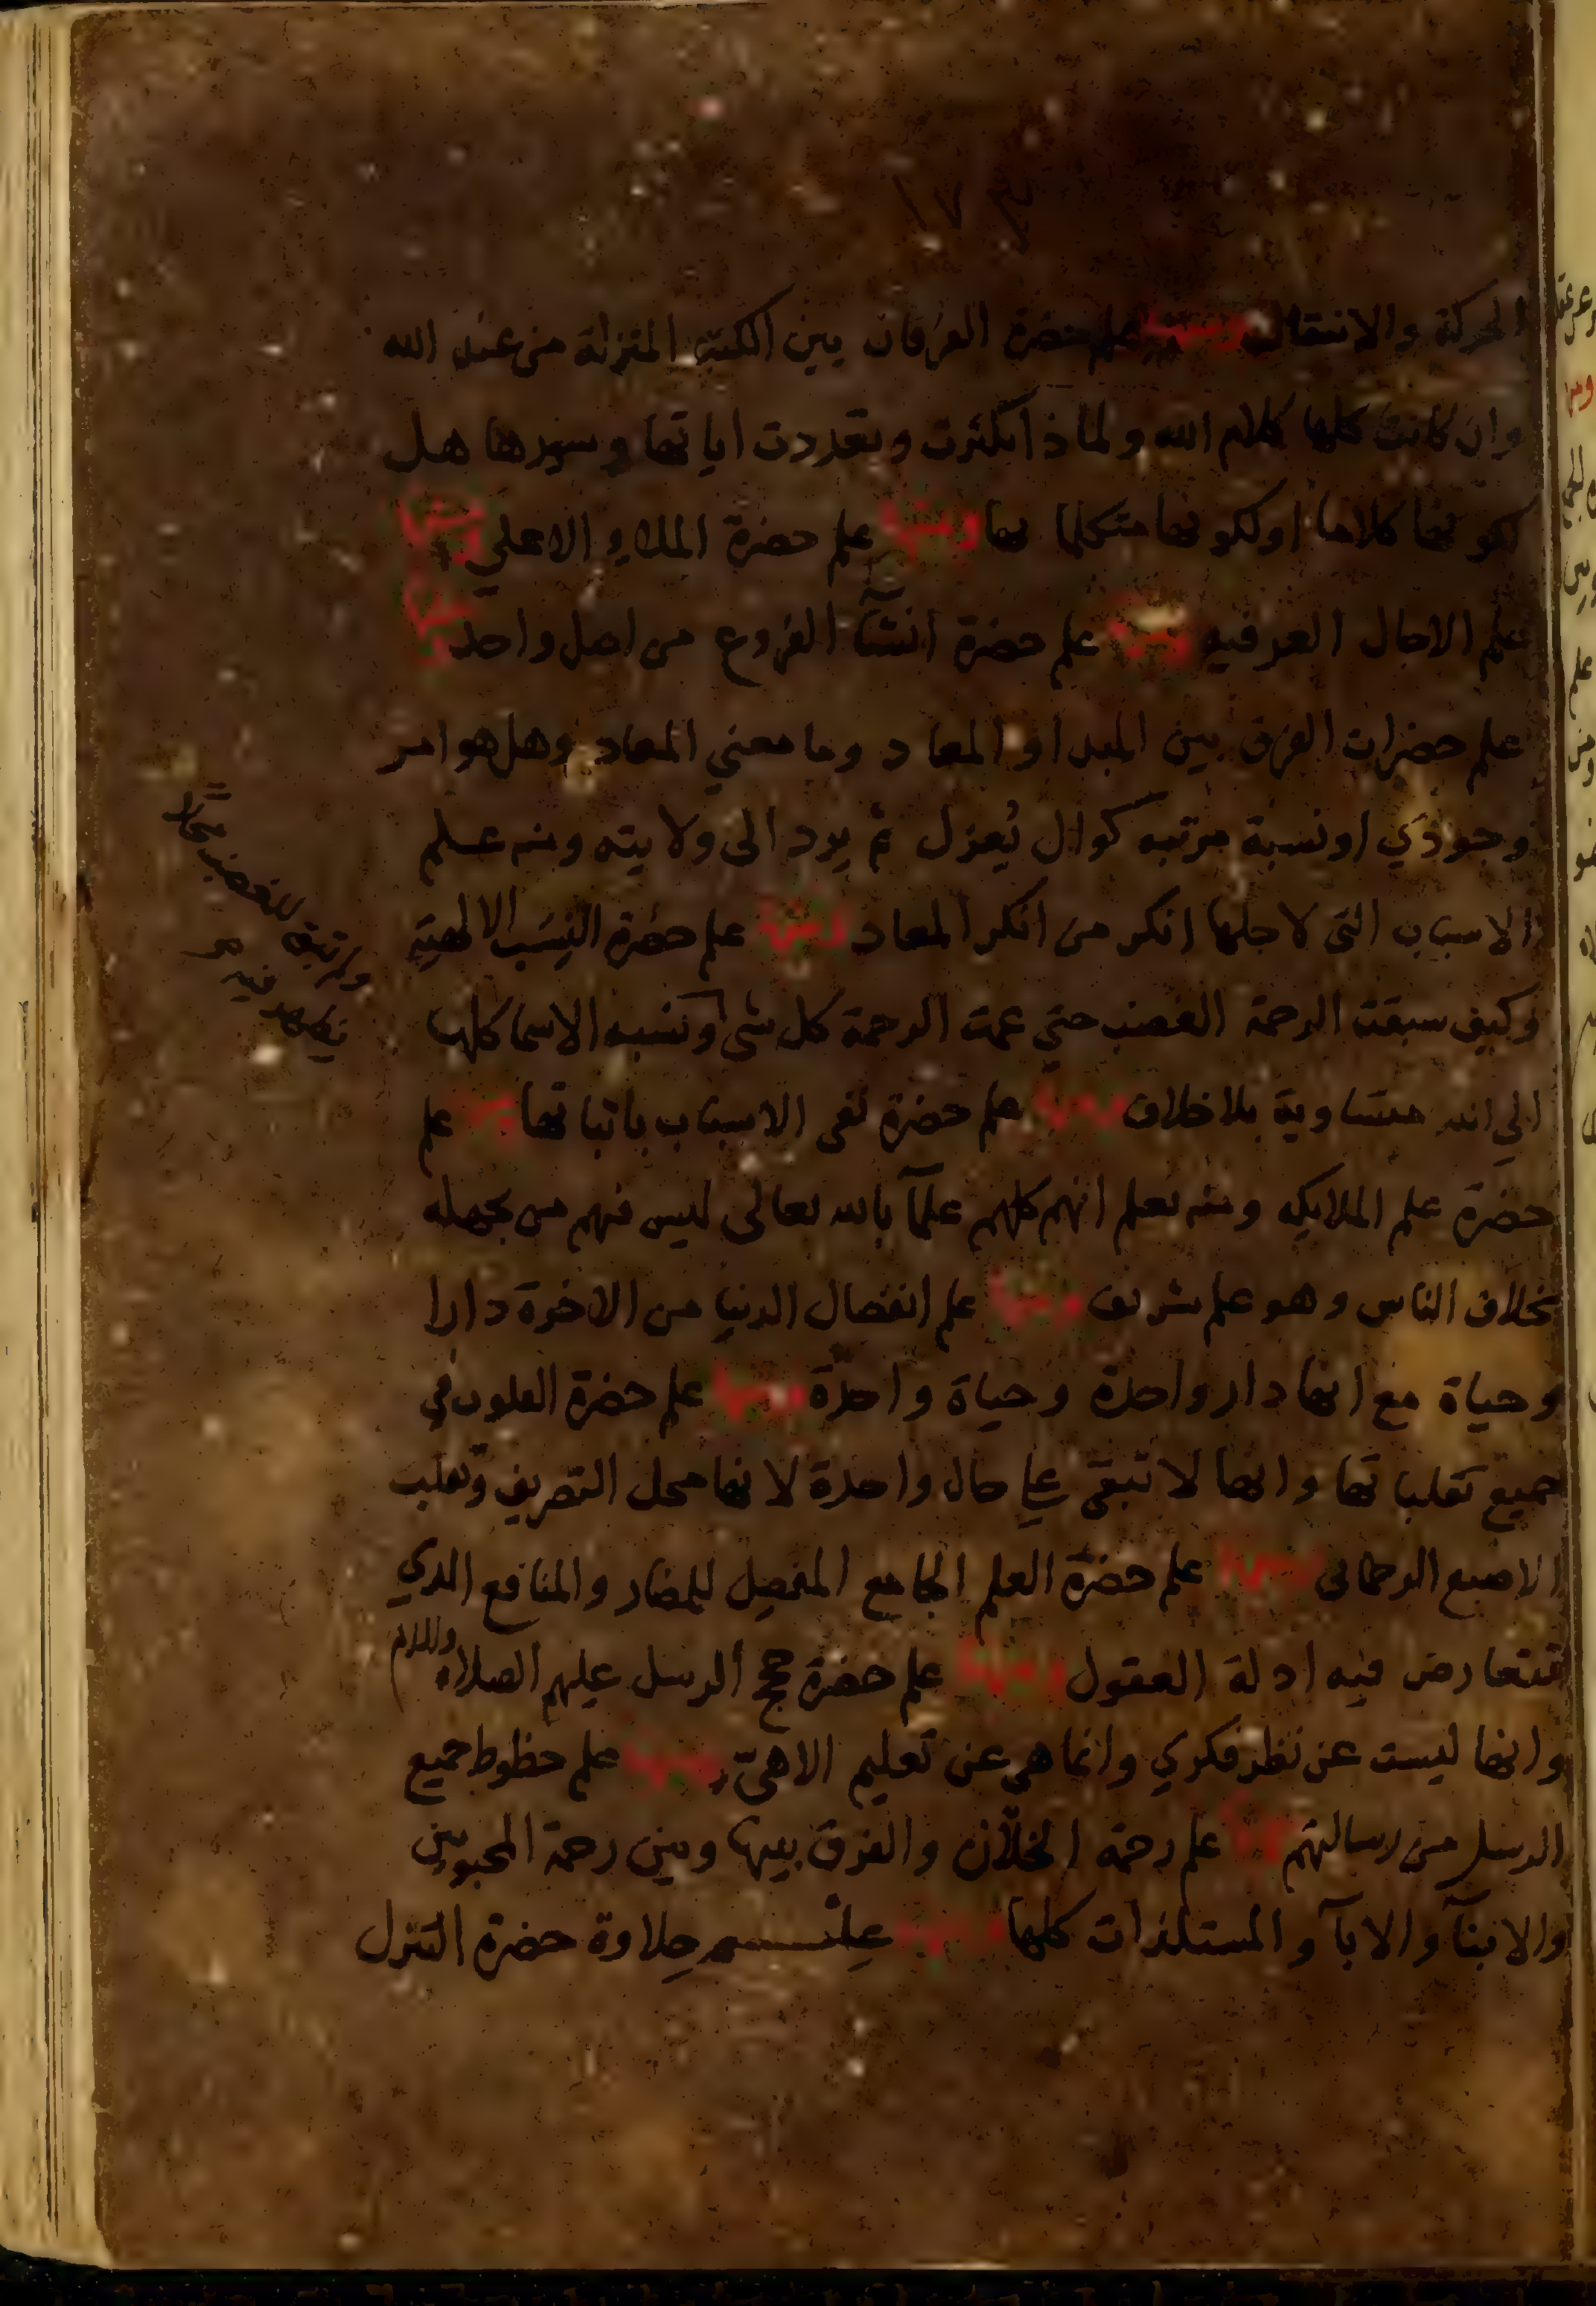 ١٧٣
الحركة والانتقال ومنها علم حضرة الفرقان بين الكتب المنزلة من عند الله
وان كانت كلها كلام الله ولماذا كثرت وتعددت اياتها وسورها هل
لكونها كلاما او لكونها متكلما بها ومنها علم حضرة الملاء الاعلي ومنها
علم الاجال العرفيه ومنها علم حضرة انشآ الفروع من اصل واحد ومنها
علم حضرات الفرق بين المبدا والمعاد وما معني المعاد وهل هو امر
وجودي او نسبة مرتبه كوال يُعزل ثم يرد الى ولايته ومنه علم
الاسباب التى لاجلها انكر من انكر المعاد ومنها علم حضرة النِسَب الالهيّه
وكيف سبقت الرحمة الغضب حتي عمت الرحمة كل شى ونسبه الاسما كلها
الي الله متساوية بلا خلاف ومنها علم حضرة نفى الاسباب باثباتها ومنها علم
حضرة علم الملايكه ومنه تعلم انهم كلهم علمآ بالله تعالى ليس فيهم من يجهله
بخلاف الناس وهو علم شريف ومنها علم انفصال الدنيا من الاخرة دارا
وحياة مع انها دار واحدة وحياة واحدة ومنها علم حضرة القلوب في
جميع تقلباتها وانها لا تبقى على حال واحدة لانها محل التصريف وتقلب
الاصبع الرحمانى ومنها علم حضرة العلم الجامع المفصل للمضار والمنافع الذي
تتعارض فيه ادلة العقول ومنها علم حضرة حجج الرسل عليهم الصلاة والسلام
وانها ليست عن نظر فكري وانما هى عن تعليم الاهىّ ومنها علم حظوط جميع
الرسل من رسالتهم ومنها علم رحمة الخلّان والفرق بينها وبين رحمة المحبوبين
والابنآ والابآ والمستلذات كلها ومنها علم حلاوة حضرة التنزل
ولم تبق للغضب محلا
يظهر فيه